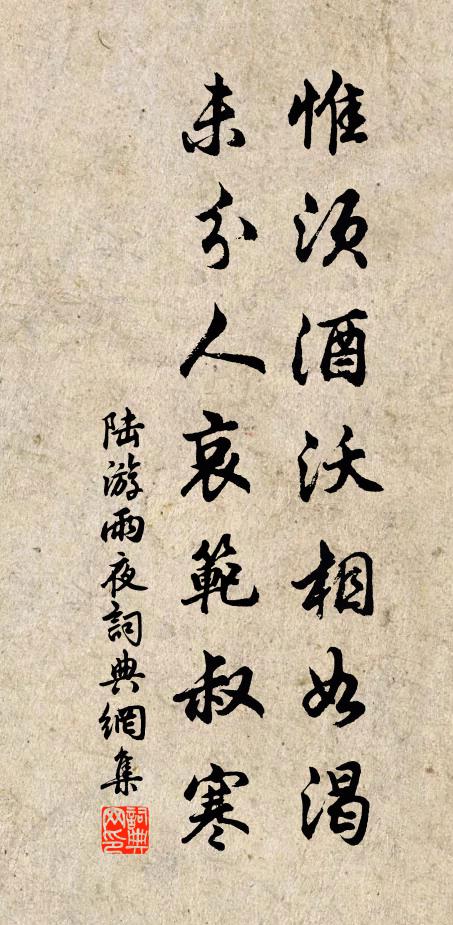 惟須酒沃相如渴
未分人哀範叔寒
陸游雨夜詞典網集
詞典網印